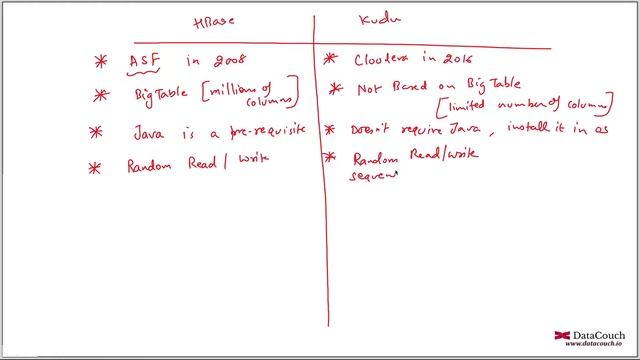 HBase Kudu
* ASF in 2008
* Cloudera in 2016
* BigTable [millions of columns]
* Not Based on BigTable
[limited number of columns]
* Java is a pre-requisite
* Doesn't require Java, install it in os
* Random Read / Write
* Random Read/Write
sequen
DataCouch
www.datacouch.io